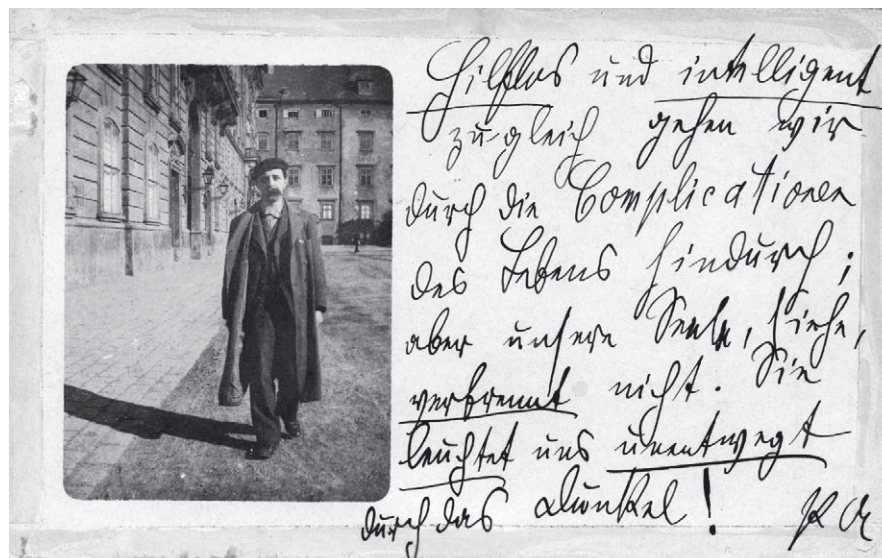 Hilflos und intelligent
zugleich gehen wir
durch die Complicationen
des Lebens hindurch;
aber unsere Seele, siehe,
verbrennt nicht. Sie
leuchtet uns unentwegt
durch das Dunkel! PA